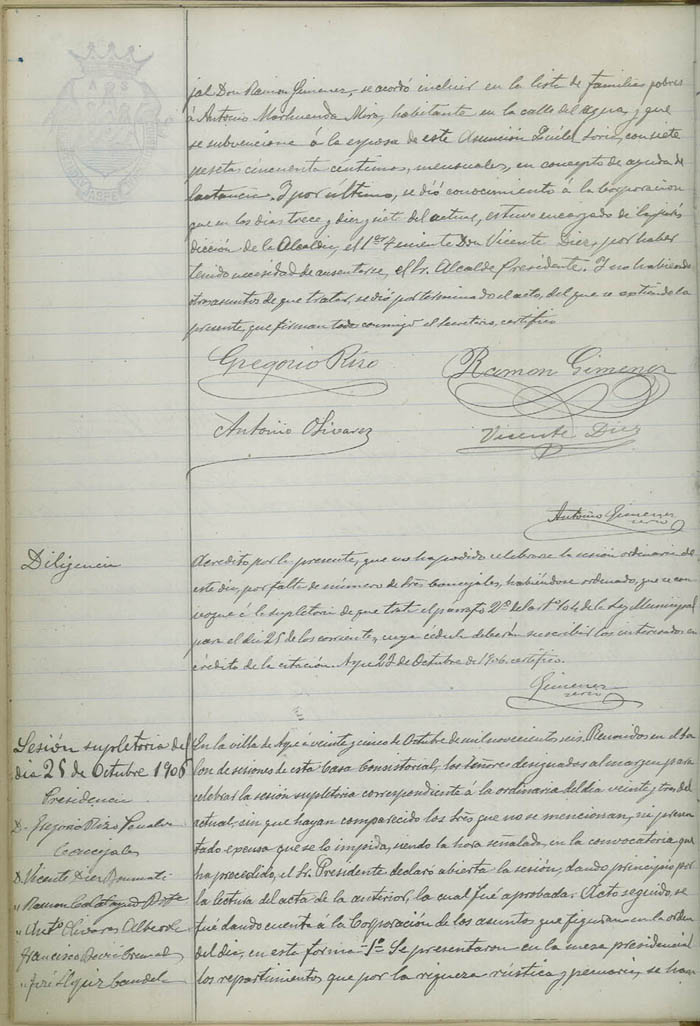 jal Don Ramon Gimenez, se acordó incluir en la lista de familias pobres
á Antonio Marhuenda Mira, habitante en la calle del agua, y que
se subvencione á la esposa de este Asunción Soria, con siete
pesetas cincuenta céntimos, mensuales, en concepto de ayuda de
lactancia. Y por último, se dió conocimiento á la Corporación
que en los dias trece y diez y siete del actual, estuvo encargado de la juris
dicción de la Alcaldia, el 1er Teniente Don Vicente Diez, por haber
tenido necesidad de ausentarse, el Sr. Alcalde Presidente. Y no habiendo
otros asuntos de que tratar, se dió por terminado el acto, del que se extiende la
presente, que firman todo conmigo el Secretario, certifico
Gregorio Rizo Ramon Gimenez
Antonio Olivarez Vicente Diez
Antonio Gimenez
serio
Diligencia
Acredito por la presente, que no ha podido celebrarse la sesión ordinaria de
este dia, por falta de número de Sres Concejales, habiéndose ordenado, que se con
voque á la supletoria de que trata el párrafo 2º de la art. 104 de la Ley Municipal
para el dia 25 de los corrientes, cuya cédula deberán suscribir los interesados en
crédito de la citación. Aspe 23 de Octubre de 1906. certifico.
Gimenez
serio
Sesión supletoria del
dia 25 de Octubre 1906
Presidencia
D. Gregorio Rizo Penalva
Concejales
D. Vicente Diez
" Ramon Calatayud
" Antº Olivares Alberola
Francisco
" José Candela
En la villa de Aspe á veinte y cinco de Octubre de mil novecientos seis. Reunidos en el Sa
lon de sesiones de esta Casa Consistorial, los señores designados al margen para
celebrar la sesión supletoria correspondiente á la ordinaria del dia veinte y tres del
actual, sin que hayan comparecido los Sres que no se mencionan, ni presen
tado excusa que se lo impida, siendo la hora señalada, en la convocatoria que
ha precedido, el Sr. Presidente declaró abierta la sesión, dando principio por
la lectura del acta de la anterior, la cual fué aprobada. Acto seguido, se
fué dando cuenta á la Corporación de los asuntos, que figuran en la orden
del dia, en esta forma = 1º Se presentaron en la mesa presidencial
los repartimientos que por la riqueza rústica y pecuaria, se han